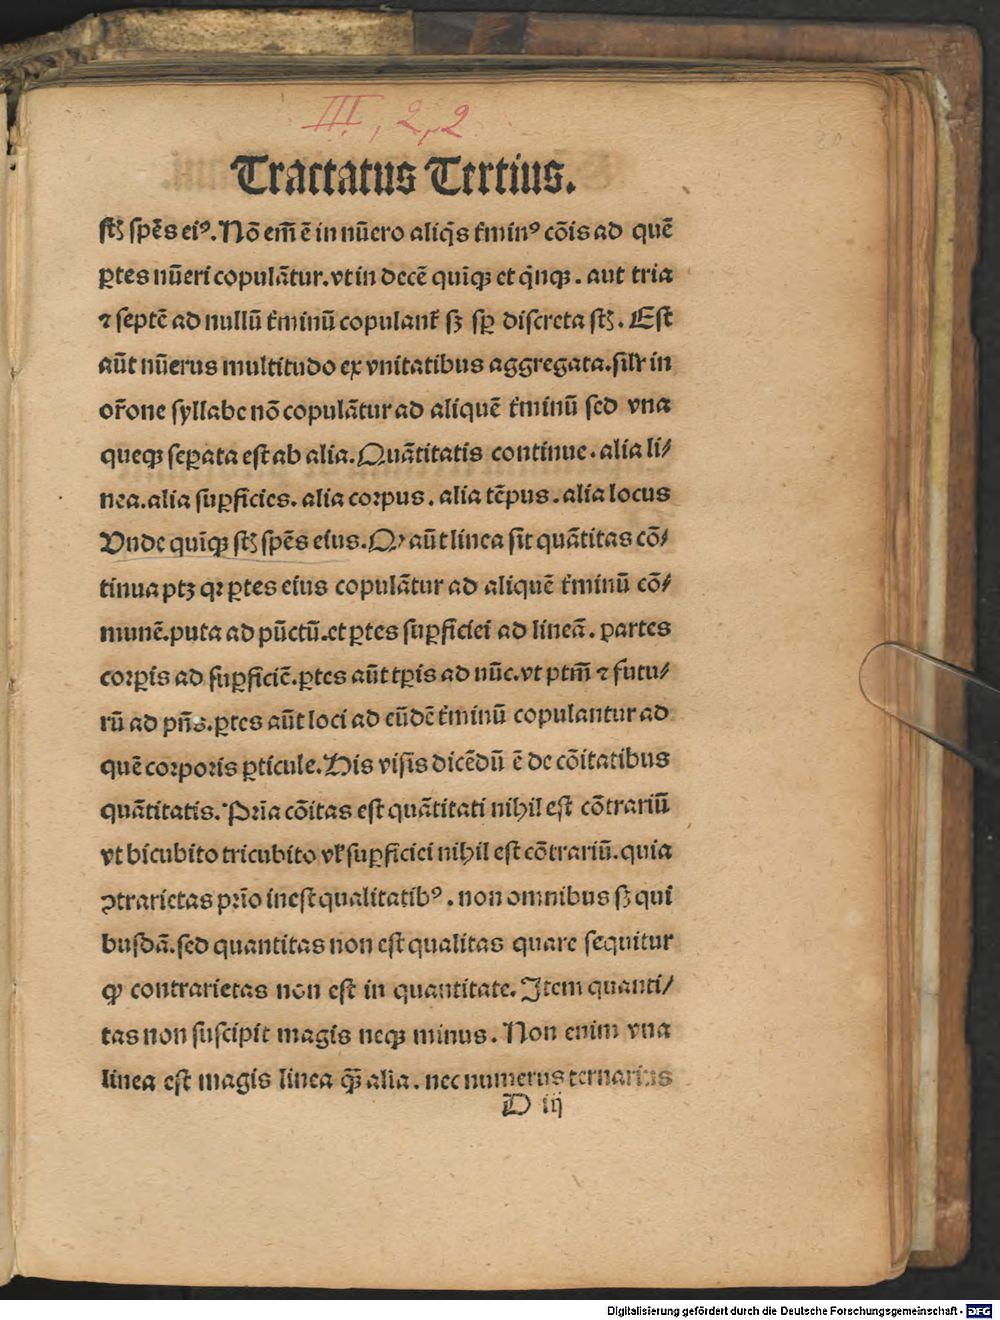 III, 2, 2
Tractatus Tertius.
ſūt ſpēs eiꝰ. Nō em̄ ē in nūero aliq̄s t̄minꝰ cōis ad quē
ꝑtes nūeri copulātur. vt in decē quīqꝫ et q̄nqꝫ. aut tria
⁊ ſeptē ad nullū t̄minū copulant̄ ſꝫ ſꝑ diſcreta ſūt. Eſt
aūt nūerus multitudo ex vnitatibus aggregata. ſilr̄ in
or̄one ſyllabe nō copulātur ad aliquē t̄minū ſed vna
queqꝫ ſeꝑata eſt ab alia. Quātitatis continue. alia li⸗
nea. alia ſuꝑficies. alia corpus. alia tēpus. alia locus
Unde quīqꝫ ſūt ſpēs eius. Ꝙ aūt linea ſit quātitas cō⸗
tinua ptꝫ qꝛ ꝑtes eius copulātur ad aliquē t̄minū cō⸗
munē. puta ad pūctū. et ꝑtes ſuꝑficiei ad lineā. partes
corꝑis ad ſuꝑficiē. ꝑtes aūt tꝑis ad nūc. vt ptm̄ ⁊ futu⸗
rū ad pn̄s. ꝑtes aūt loci ad eūdē t̄minū copulantur ad
quē corporis ꝑticule. His viſis dicēdū ē de cōitatibus
quātitatis. Pr̄ia cōitas eſt quātitati nihil eſt cōtrariū
vt bicubito tricubito vl̄ ſuꝑficiei nihil eſt cōtrariū. quia
ꝯtrarietas pr̄io ineſt qualitatibꝰ. non omnibus ſꝫ qui
buſdā. ſed quantitas non eſt qualitas quare ſequitur
ꝙ contrarietas non eſt in quantitate. Item quanti⸗
tas non ſuſcipit magis neqꝫ minus. Non enim vna
linea eſt magis linea qꝫ̄ alia. nec numerus ternarius
D iij
Digitalisierung gefördert durch die Deutsche Forschungsgemeinschaft - DFG